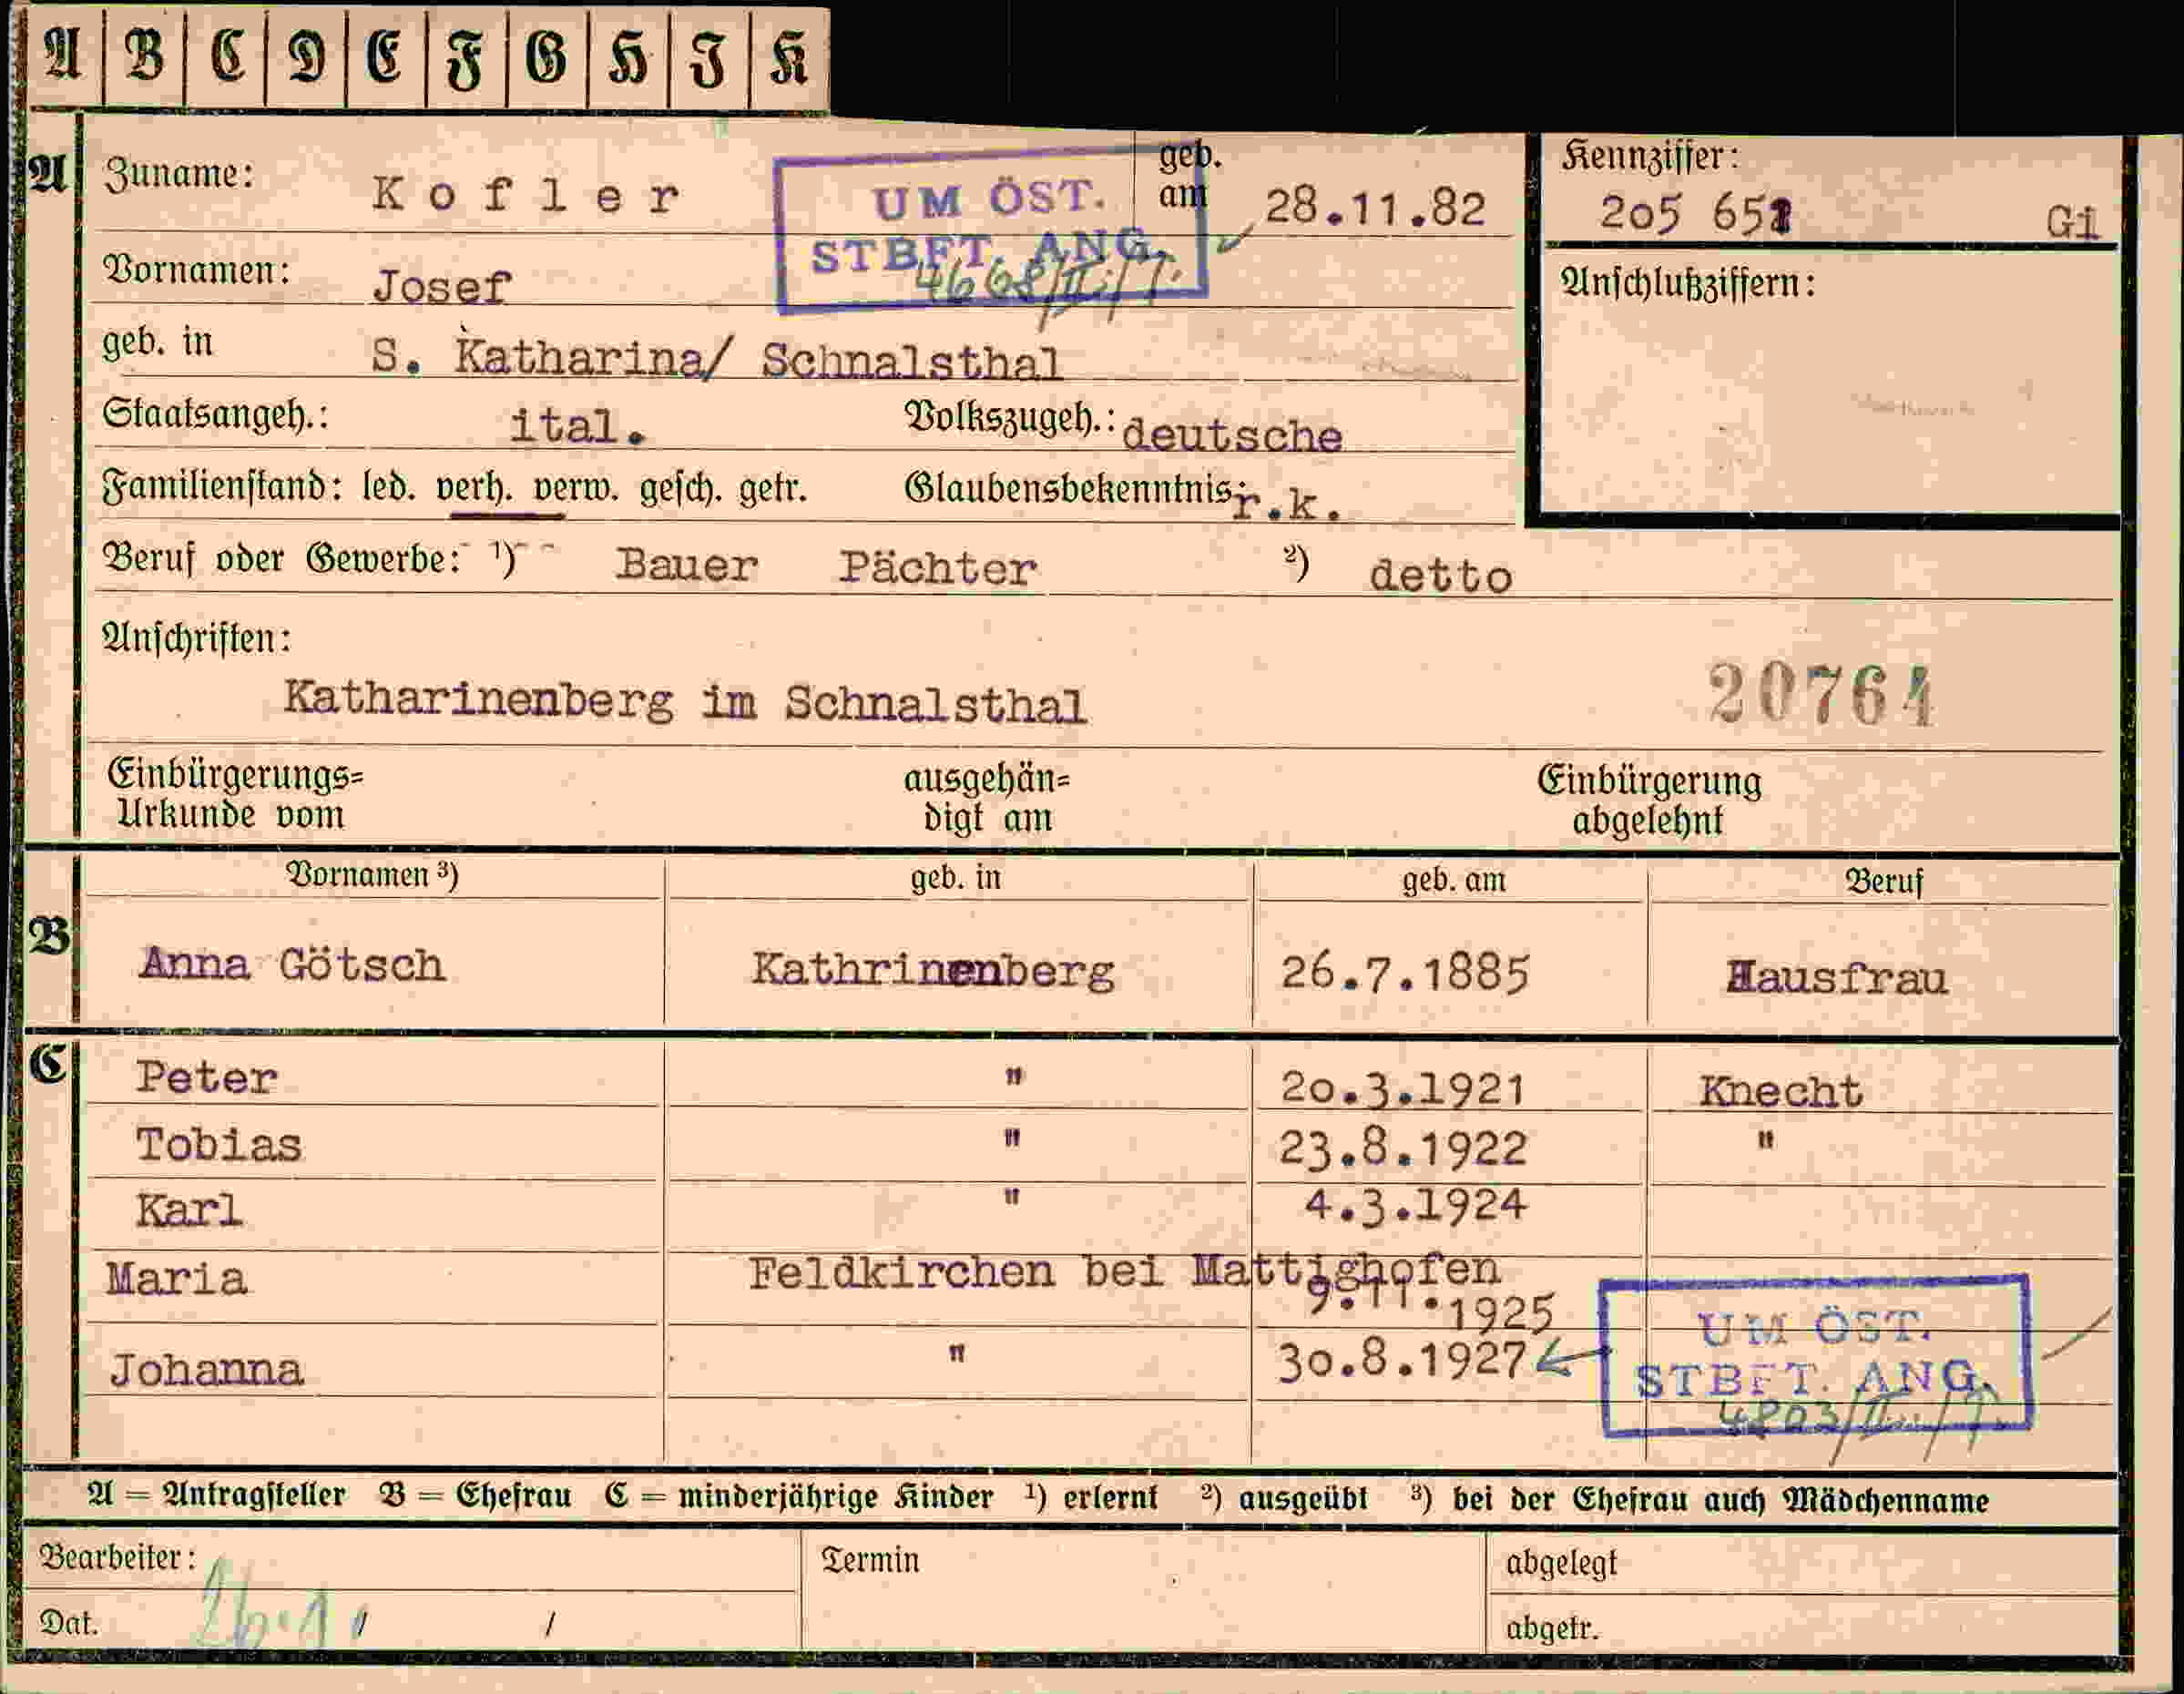 A B C D E F G H I K
A Zuname: Kofler geb. am 28.11.82 Kennziffer:
UM ÖST. STBFT. ANG. 205 651 Gi
4668/II./7.
Vornamen: Josef Anschlußziffern:
geb. in S. Katharina/ Schnalsthal
Staatsangeh.: ital. Volkszugeh.: deutsche
Familienstand: led. verh. verw. gesch. getr. Glaubensbekenntnis: r.k.
Beruf oder Gewerbe: ¹) Bauer Pächter ²) detto
Anschriften:
Katharinenberg im Schnalsthal 20764
Einbürgerungs= ausgehän= Einbürgerung
Urkunde vom digt am abgelehnt
Vornamen ³) geb. in geb. am Beruf
B Anna Götsch Kathrinenberg 26.7.1885 Hausfrau
C Peter " 20.3.1921 Knecht
Tobias " 23.8.1922 "
Karl " 4.3.1924
Maria Feldkirchen bei Mattighofen
9.11.1925
Johanna " 30.8.1927
UM ÖST.
STBFT. ANG.
A = Antragsteller B = Ehefrau C = minderjährige Kinder ¹) erlernt ²) ausgeübt ³) bei der Ehefrau auch Mädchenname
Bearbeiter: Termin abgelegt
Dat. / / abgetr.